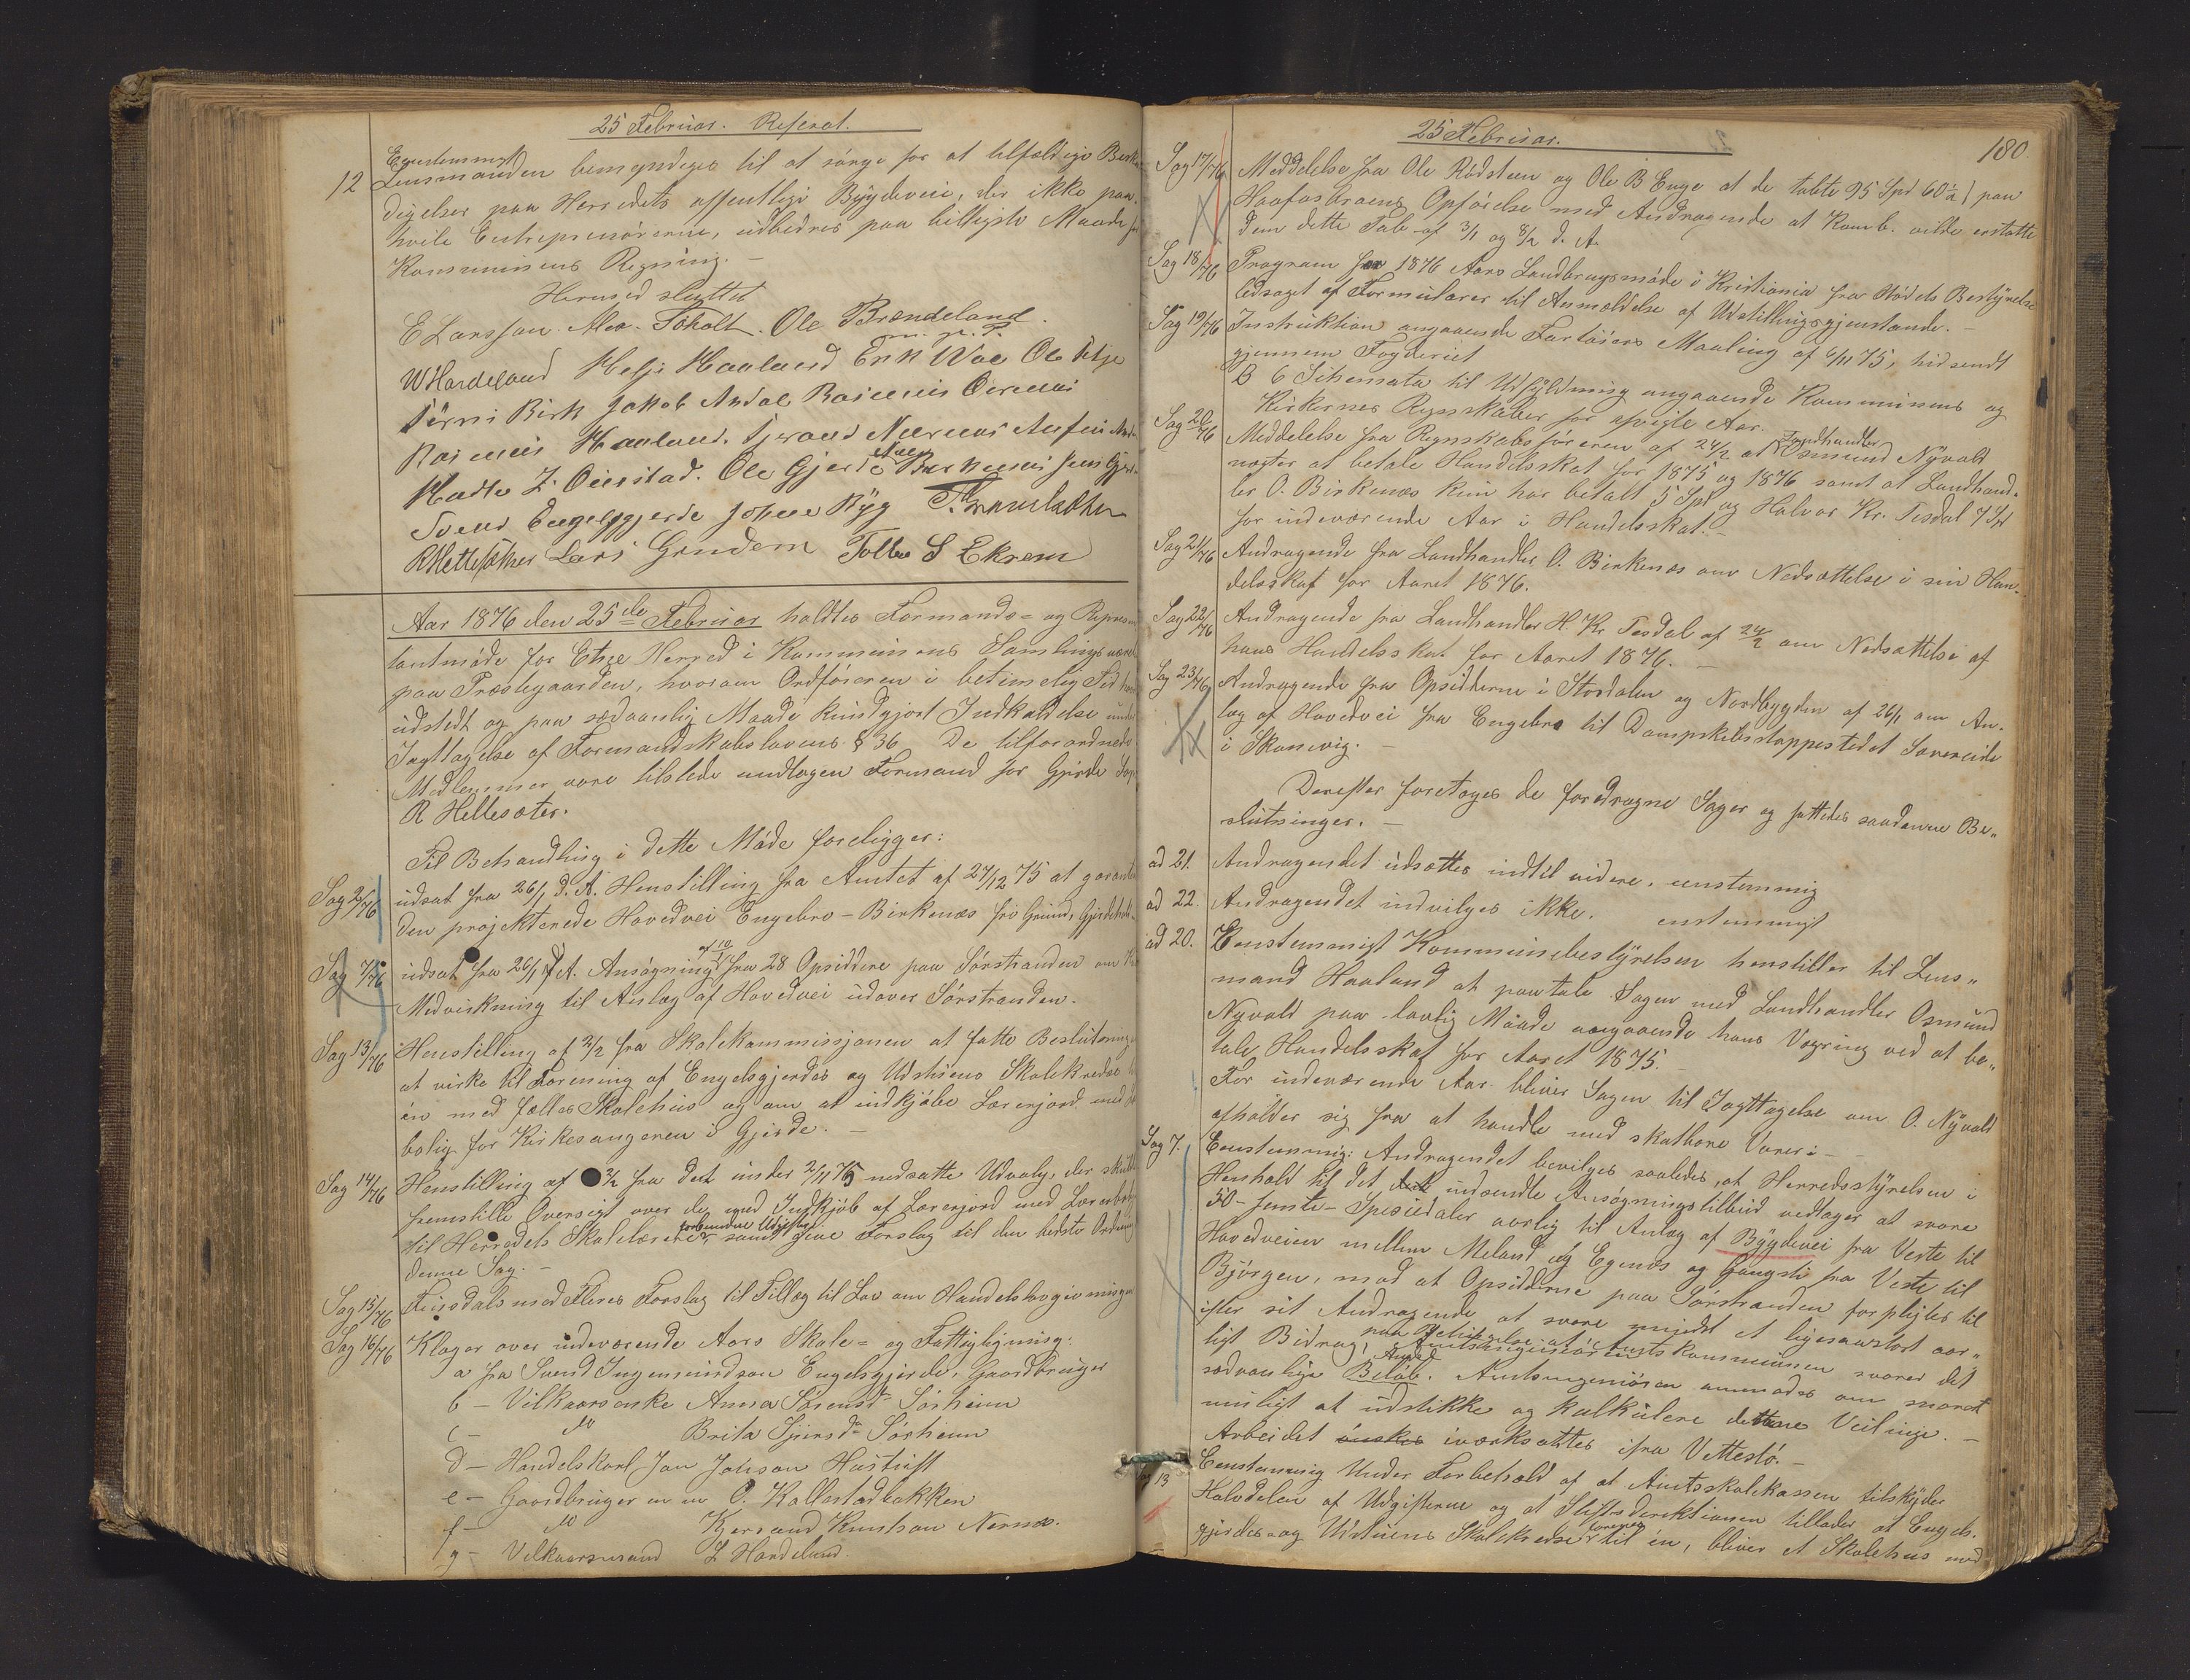 25 Februar. Referat.
12
Eenstemmigt
Lensmanden bemyndiges til at sørge for at tilfældige Besk
digelser paa Herredets offentlige Bygdeveie, der ikke paa
hvile Entreprenørerne, udbedres paa billigste Maade
Kommunens Regning. -
Hermed sluttet
E Larsson. Alex. Tøholt. Ole Brændeland.
m. p. P.
W Hardeland Helje Haaland Erik Vae Ole Silje
Tørris Birk Jakob Andal Rasmus
Rasmus Haaland. Tjerand Nærnæs
Hadle L. Øierstad. Ole Gjerde Birkenæs Jens
Svend Engelsgjerde Johan Ryg
R Hettesæter Lars Grindem Tollev S Ekrem
Aar 1876 den 25de Februar holdtes Formands- og Repræsen
tantmøde for Etne Herred i Kommunens Samlingsværel
paa Præstegaarden, hvorom Ordføreren i betimelig Tid
udstedt og paa sædvanlig Maade kundgjort Indkaldelse under
Iagttagelse af Formandskabslovens § 36 De tilforordnede
Medlemmer vare tilstede undtagen Formand for Gjerde Sogn
R Hellesæter.
Til Behandling i dette Møde foreligger:
Sag 2/76 udsat fra 26/1 d. A. Henstilling fra Amtet af 27/12 75 at garantere
den projekterede Hovedvei Engebro - Birkenæs fri Grund, Gjerdehold
Sag 7/76 udsat fra 26/1 d. A. Ansøgning af 10/1 fra 28 Opsiddere paa Sørstranden om
Medvirkning til Anlæg af Hovedvei udover Sørstranden.
Sag 13/76 Henstilling af 2/2 fra Skolekommissjonen at fatte Beslutning
at virke til Forening af Engelsgjerdes og Udstuens Skolekredse
én med fælles Skolehus og om at indkjøbe Lærerjord med
bolig for Kirkesangeren i Gjerde. -
Sag 14/76 Henstilling af 2/2 fra det under 2/11 75 nedsatte Udvalg, der skulde
fremstille Oversigt over de med Indkjøb af Lærerjord med Lærerbolig
til Herredets Skolelærere forbundne Udgifter samt give Forslag til den bedste Ordning
denne Sag. -
Sag 15/76 Finsdals med Fleres Forslag til Tillæg til Lov om Handelslovgivningen
Sag 16/76 Klager over indeværende Aars Skole- og Fattigligning:
a fra Svend Ingemundson Engelsgjerde, Gaardbruger
b - Vilkaarsenke Anna Sørensd. Sørheim
c - do Brita Sjursd. Sørheim
d - Handelskarl Jon Johnson Hustuft
e - Gaardbruger m m O. Kallestadbakken
f - do Tjerand Knutson Nernæs.
g - Vilkaarsmand L Hardeland.
25 Februar.
180.
Sag 17/76 Meddelelse fra Ole Rødsteen og Ole B Enge at de tabte 95 Spd 60 ß paa
Haafosbroens Opførelse med Andragende at Komb. vilde erstatte
dem dette Tab af 3/1 og 8/2 d. A.
Sag 18/76 Program for 1876 Aars Landbrugsmøde i Kristiania fra Mødets Bestyrelse
ledsaget af Formularer til Anmeldelse af Udstillingsgjenstande. -
Sag 19/76 Instruktion angaaende Fartøiers Maaling af 6/11 75, hidsendt
gjennem Fogderiet
& 6 Schemata til Udfyldning angaaende Kommunens og
Kirkernes Regnskaber for afvigte Aar.
Sag 20/76 Meddelelse fra Regnskabsføreren af 24/2 at Landhandler Osmund Nyvold
nægter at betale Handelsskat for 1875 og 1876 samt at Landhand-
ler O. Birkenæs kun har betalt 5 Spd og Halvor Kr. Tesdal 7 Spd
for indeværende Aar i Handelsskat. -
Sag 21/76 Andragende fra Landhandler O. Birkenæs om Nedsættelse i sin Han-
delsskat for Aaret 1876.
Sag 22/76 Andragende fra Landhandler H. Kr Tesdal af 24/2 om Nedsættelse af
hans Handelsskat for Aaret 1876. -
Sag 23/76 Andragende fra Opsidderne i Stordalen og Nordbygden af 26/1 om An-
læg af Hovedvei fra Engebro til Dampskibsstoppestedet Saureeide
i Skonevig. -
Derefter foretoges de foredragne Sager og fattedes saadanne Be-
slutninger. -
ad 21. Andragendet udsættes indtil videre. enstemmig
ad 22. Andragendet indvilges ikke. enstemmigt
ad 20. Eenstemmigt Kommunebestyrelsen henstiller til Lens-
mand Haaland at paatale Sagen med Landhandler Osmund
Nyvold paa lovlig Maade angaaende hans Vægring ved at be-
tale Handelsskat for Aaret 1875.
For indeværende Aar bliver Sagen til Iagttagelse om O. Nyvold
afholder sig fra at handle med skatbare Varer. -
Sag 7. Eenstemmig: Andragendet bevilges saaledes, at Herredsstyrelsen i
Henhold til det indsendte Ansøgningstilbud vedtager at svare
50 - femti - Spesiedaler aarlig til Anlæg af Bygdevei fra Veste til
Hovedveien mellem Meland og Egenæs og Gangsti fra Veste til
Bjørgen, mod at Opsidderne paa Sørstranden forpligtes til
efter sit Andragende at svare mindst et ligesaastort aar-
ligt Bidrag, paa Betingelse at Amtskommunen svarer det
sædvanlige Beløb. Amtsingeniøren anmodes om snarest
muligt at udstikke og kalkulere dette Veilinje. -
Arbeidet ønskes iværksættes ifra Vetteslø. -
13 Eenstemmig Under Forbehold af at Amtsskolekassen tilskyder
Halvdelen af Udgifterne og at Stiftsdirektionen tillader at Engels-
gjerdes og Udstuens Skolekredse forenes til én, bliver et Skolehus med